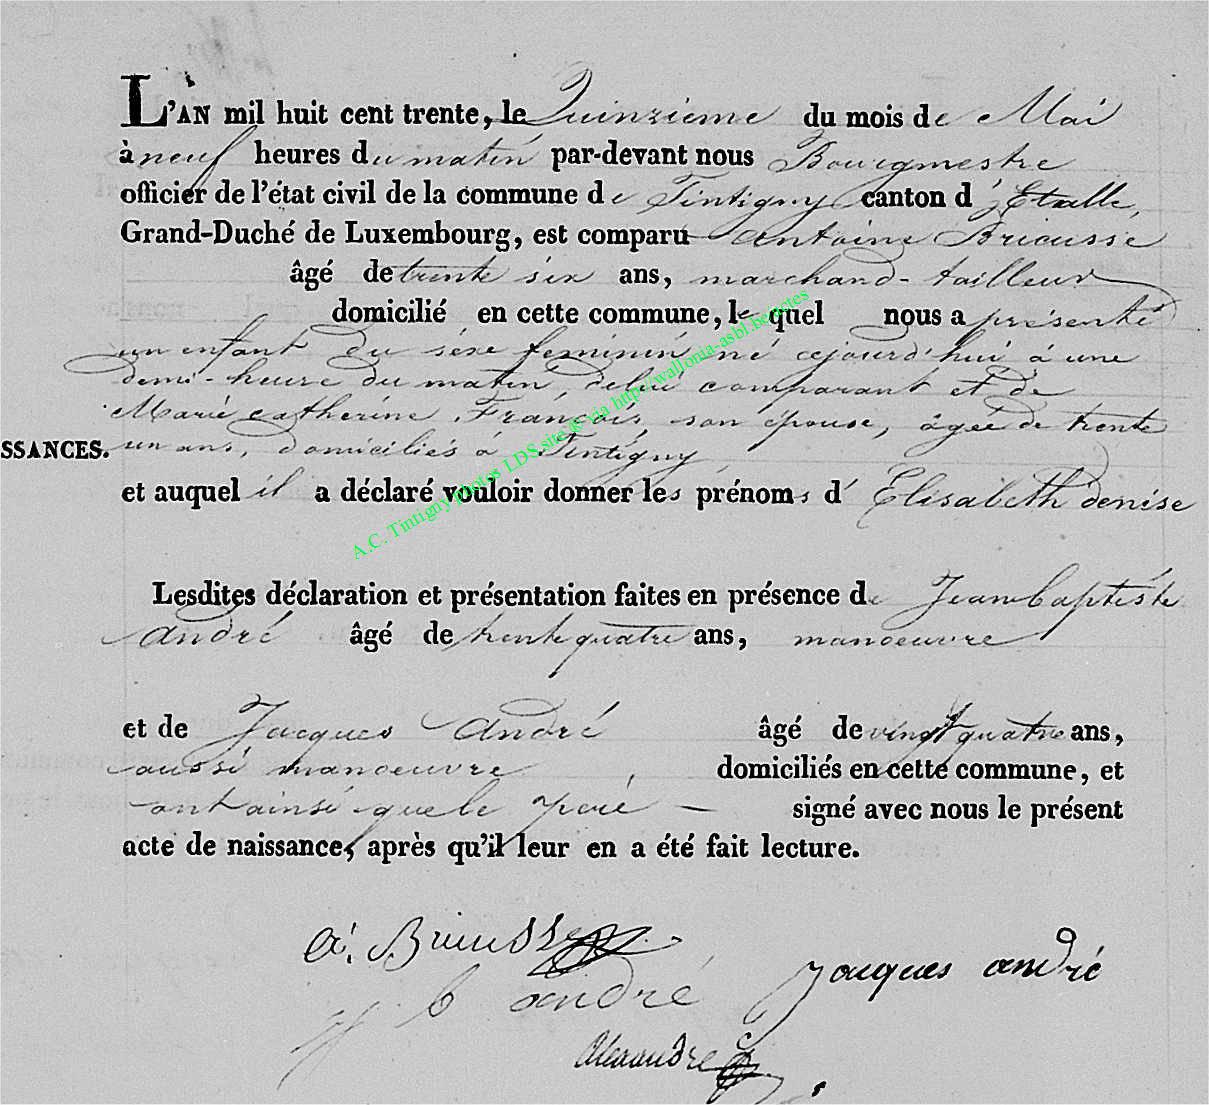 L'AN mil huit cent trente, le Quinzieme du mois de Mai
à neuf heures du matin par-devant nous Bourgmestre
officier de l'état civil de la commune de Tintigny canton d'Etalle,
Grand-Duché de Luxembourg, est comparu Antoine Bricusse
âgé de trente six ans, marchand-tailleur
domicilié en cette commune, lequel nous a présenté
un enfant du séxe feminin né cejourd'hui à une
demi-heure du matin, de lui comparant et de
Marie catherine François, son épouse, âgée de trente
un ans, domiciliés à Tintigny
SSANCES.
et auquel il a déclaré vouloir donner les prénoms d'Elisabeth denise
A.C. Tintigny photos LDS site & via http://wallonia-asbl.be/actes
Lesdites déclaration et présentation faites en présence de Jean baptiste
André âgé de trente quatre ans, manoeuvre
et de Jacques André âgé de vingt quatre ans,
aussi manoeuvre, domiciliés en cette commune, et
ont ainsi que le père signé avec nous le présent
acte de naissance, après qu'il leur en a été fait lecture.
a. Bricusse
j b andré
jacques andré
Alexandre